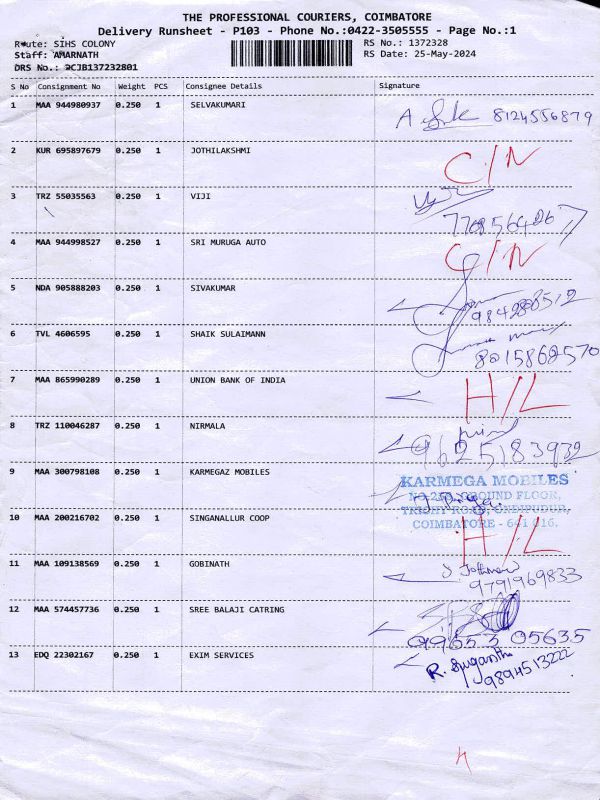 THE PROFESSIONAL COURIERS, COIMBATORE
Delivery Runsheet - P103 - Phone No.:0422-3505555 - Page No.:1
Route: SIHS COLONY RS No.: 1372328
Staff: AMARNATH RS Date: 25-May-2024
DRS No.: DCJB137232801
S No Consignment No Weight PCS Consignee Details Signature
1 MAA 944980937 0.250 1 SELVAKUMARI
8124556879
2 KUR 695897679 0.250 1 JOTHILAKSHMI C/N
3 TRZ 55035563 0.250 1 VIJI
4 MAA 944998527 0.250 1 SRI MURUGA AUTO C/N
5 NDA 905888203 0.250 1 SIVAKUMAR
6 TVL 4606595 0.250 1 SHAIK SULAIMANN
8015868570
7 MAA 865990289 0.250 1 UNION BANK OF INDIA H/L
8 TRZ 110046287 0.250 1 NIRMALA
9625183932
9 MAA 300798108 0.250 1 KARMEGAZ MOBILES
KARMEGA MOBILES
GROUND FLOOR,
TRICHY ROAD, ONDIPUDUR,
COIMBATORE - 641 016.
10 MAA 200216702 0.250 1 SINGANALLUR COOP H/L
11 MAA 109138569 0.250 1 GOBINATH
9791969833
12 MAA 574457736 0.250 1 SREE BALAJI CATRING
99653 05635
13 EDQ 22302167 0.250 1 EXIM SERVICES
R. Suganthi
9894513222